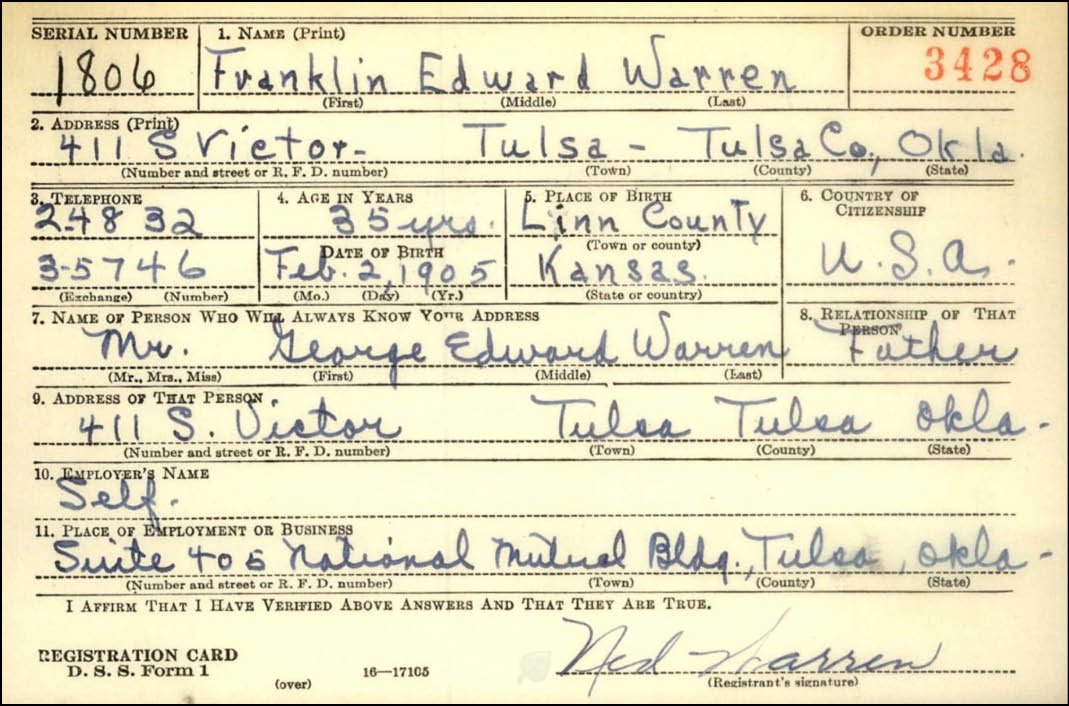 SERIAL NUMBER 1. NAME (Print) ORDER NUMBER
1806 Franklin Edward Warren 3428
(First) (Middle) (Last)
2. ADDRESS (Print)
411 S Victor- Tulsa - Tulsa Co., Okla.
(Number and street or R. F. D. number) (Town) (County) (State)
3. TELEPHONE 4. AGE IN YEARS 5. PLACE OF BIRTH 6. COUNTRY OF CITIZENSHIP
2-4832 35 yrs. Linn County
DATE OF BIRTH (Town or county)
3-5746 Feb. 2, 1905 Kansas. U.S.A.
(Exchange) (Number) (Mo.) (Day) (Yr.) (State or country)
7. NAME OF PERSON WHO WILL ALWAYS KNOW YOUR ADDRESS 8. RELATIONSHIP OF THAT PERSON
Mr. George Edward Warren Father
(Mr., Mrs., Miss) (First) (Middle) (Last)
9. ADDRESS OF THAT PERSON
411 S. Victor Tulsa Tulsa Okla.
(Number and street or R. F. D. number) (Town) (County) (State)
10. EMPLOYER'S NAME
Self.
11. PLACE OF EMPLOYMENT OR BUSINESS
Suite 405 National Mutual Bldg., Tulsa, Okla-
(Number and street or R. F. D. number) (Town) (County) (State)
I AFFIRM THAT I HAVE VERIFIED ABOVE ANSWERS AND THAT THEY ARE TRUE.
Ned Warren
REGISTRATION CARD
D. S. S. Form 1 (over) 16—17105 (Registrant's signature)